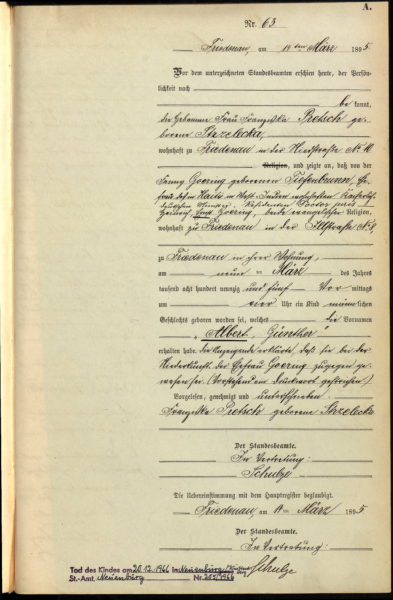 A.
Nr. 63
Friedenau, am 11ten März 1895
Vor dem unterzeichneten Standesbeamten erschien heute, der Persön-
lichkeit nach
be kannt,
die Hebamme Frau Franziska Pretsch ge-
borene Strzelecka,
wohnhaft zu Friedenau in der Nr.
Religion, und zeigte an, daß von der
Fanny Goering geborenen Tiefenbrunn, Ehe-
frau des in Haiti in West-Indien wohnhaften Kaiserlich
Deutschen Minister-Residenten Doctor juris
Heinrich Ernst Goering, beide evangelischer Religion,
wohnhaft zu Friedenau in der Illstraße Nr.
zu Friedenau in ihrer Wohnung
am neun ten März des Jahres
tausend acht hundert neunzig und fünf Vor mittags
um Uhr ein Kind männ lichen
Geschlechts geboren worden sei, welches die Vornamen
"Albert, Günther"
erhalten habe. Die Anzeigende erklärte, daß sie bei der
Niederkunft der Ehefrau Goering zugegen ge-
wesen sei. (Vorstehend ein Druckwort gestrichen.)
Vorgelesen, genehmigt und unterschrieben
Franziska Pretsch geborene Strzelecka
Der Standesbeamte.
In Vertretung:
Schulze
Die Uebereinstimmung mit dem Hauptregister beglaubigt.
Friedenau, am 11 ten März 1895
Der Standesbeamte.
In Vertretung:
Schulze
Tod des Kindes am 20.12.1966 in Neuenbürg
St.-Amt. Neuenbürg Nr. 205/1966